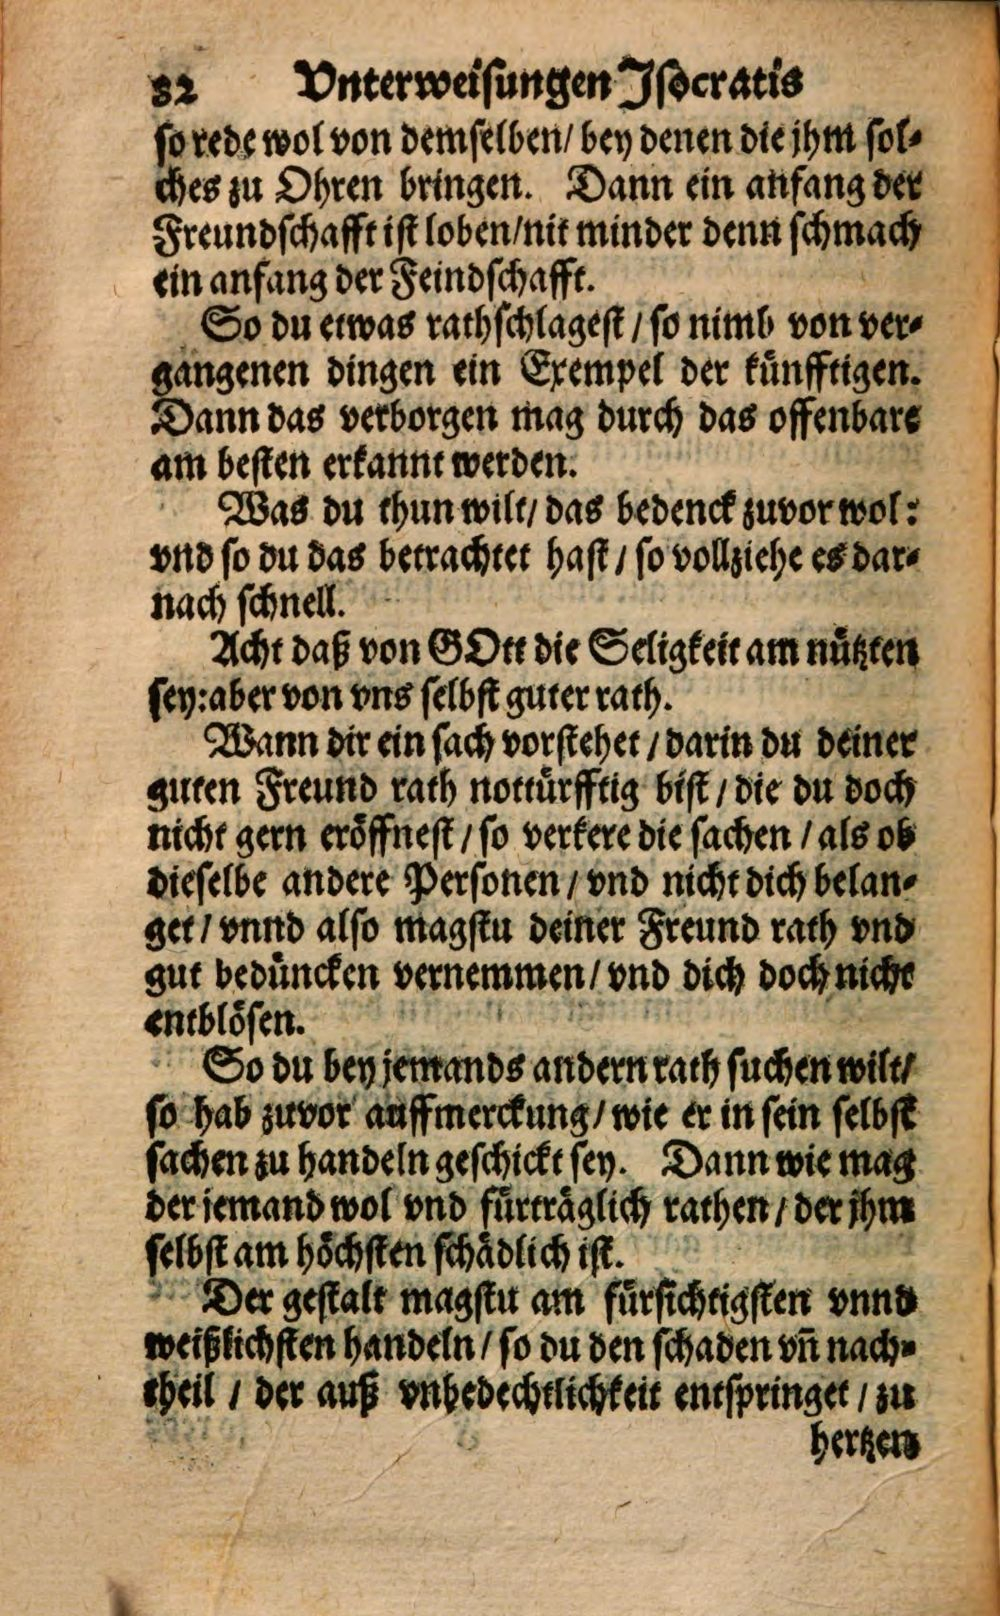 82 Vnterweisungen Jsocratis
so rede wol von demselben/ bey denen die jhm sol-
ches zu Ohren bringen. Dann ein anfang der
Freundschafft ist loben/ nit minder denn schmach
ein anfang der Feindschafft.
So du etwas rathschlagest / so nimb von ver-
gangenen dingen ein Exempel der künfftigen.
Dann das verborgen mag durch das offenbare
am besten erkannt werden.
Was du thun wilt/ das bedenck zuvor wol:
vnd so du das betrachtet hast / so vollziehe es dar-
nach schnell.
Acht daß von GOtt die Seligkeit am nützten
sey: aber von vns selbst guter rath.
Wann dir ein sach vorstehet / darin du deiner
guten Freund rath nottürfftig bist / die du doch
nicht gern eröffnest / so verkere die sachen / als ob
dieselbe andere Personen / vnd nicht dich belan-
get / vnnd also magstu deiner Freund rath vnd
gut bedüncken vernemmen/ vnd dich doch nicht
entblösen.
So du bey jemands andern rath suchen wilt/
so hab zuvor auffmerckung/ wie er in sein selbst
sachen zu handeln geschickt sey. Dann wie mag
der jemand wol vnd fürträglich rathen / der jhm
selbst am höchsten schädlich ist.
Der gestalt magstu am fürsichtigsten vnnd
weißlichsten handeln / so du den schaden vn̄ nach-
theil / der auß vnbedechtlichkeit entspringet / zu
hertzen